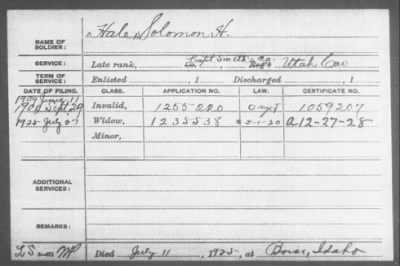 NAME OF SOLDIER: Hale, Solomon H.
SERVICE: Late rank, Capt Smith's Co. Utah Cav
TERM OF SERVICE: Enlisted , 1 Discharged , 1
DATE OF FILING. CLASS. APPLICATION NO. LAW. CERTIFICATE NO.
Invalid, 1255220 1059207
1925 July 27 Widow, 1235538 A12-27-28
Minor,
ADDITIONAL SERVICES:
REMARKS:
Died July 11 , 1925, at Boise, Idaho